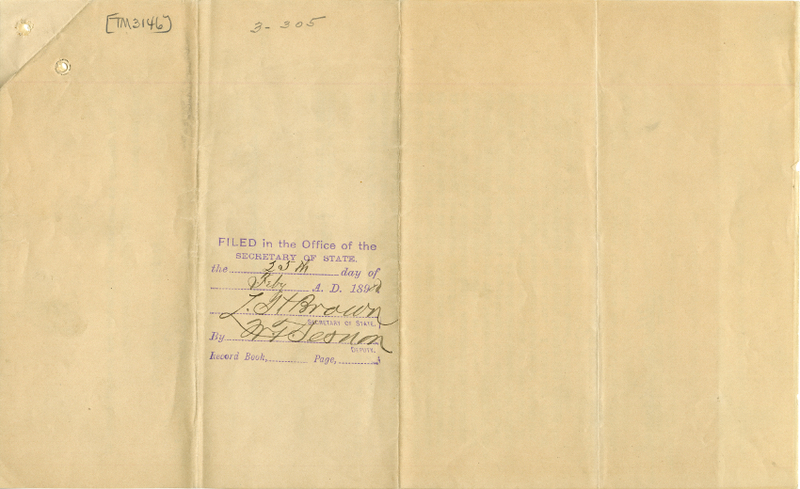 [TM3146]
3-305
FILED in the Office of the
SECRETARY OF STATE.
the 25th day of
Feby A. D. 189
L. H. Brown
SECRETARY OF STATE.
By
DEPUTY.
Record Book, Page,